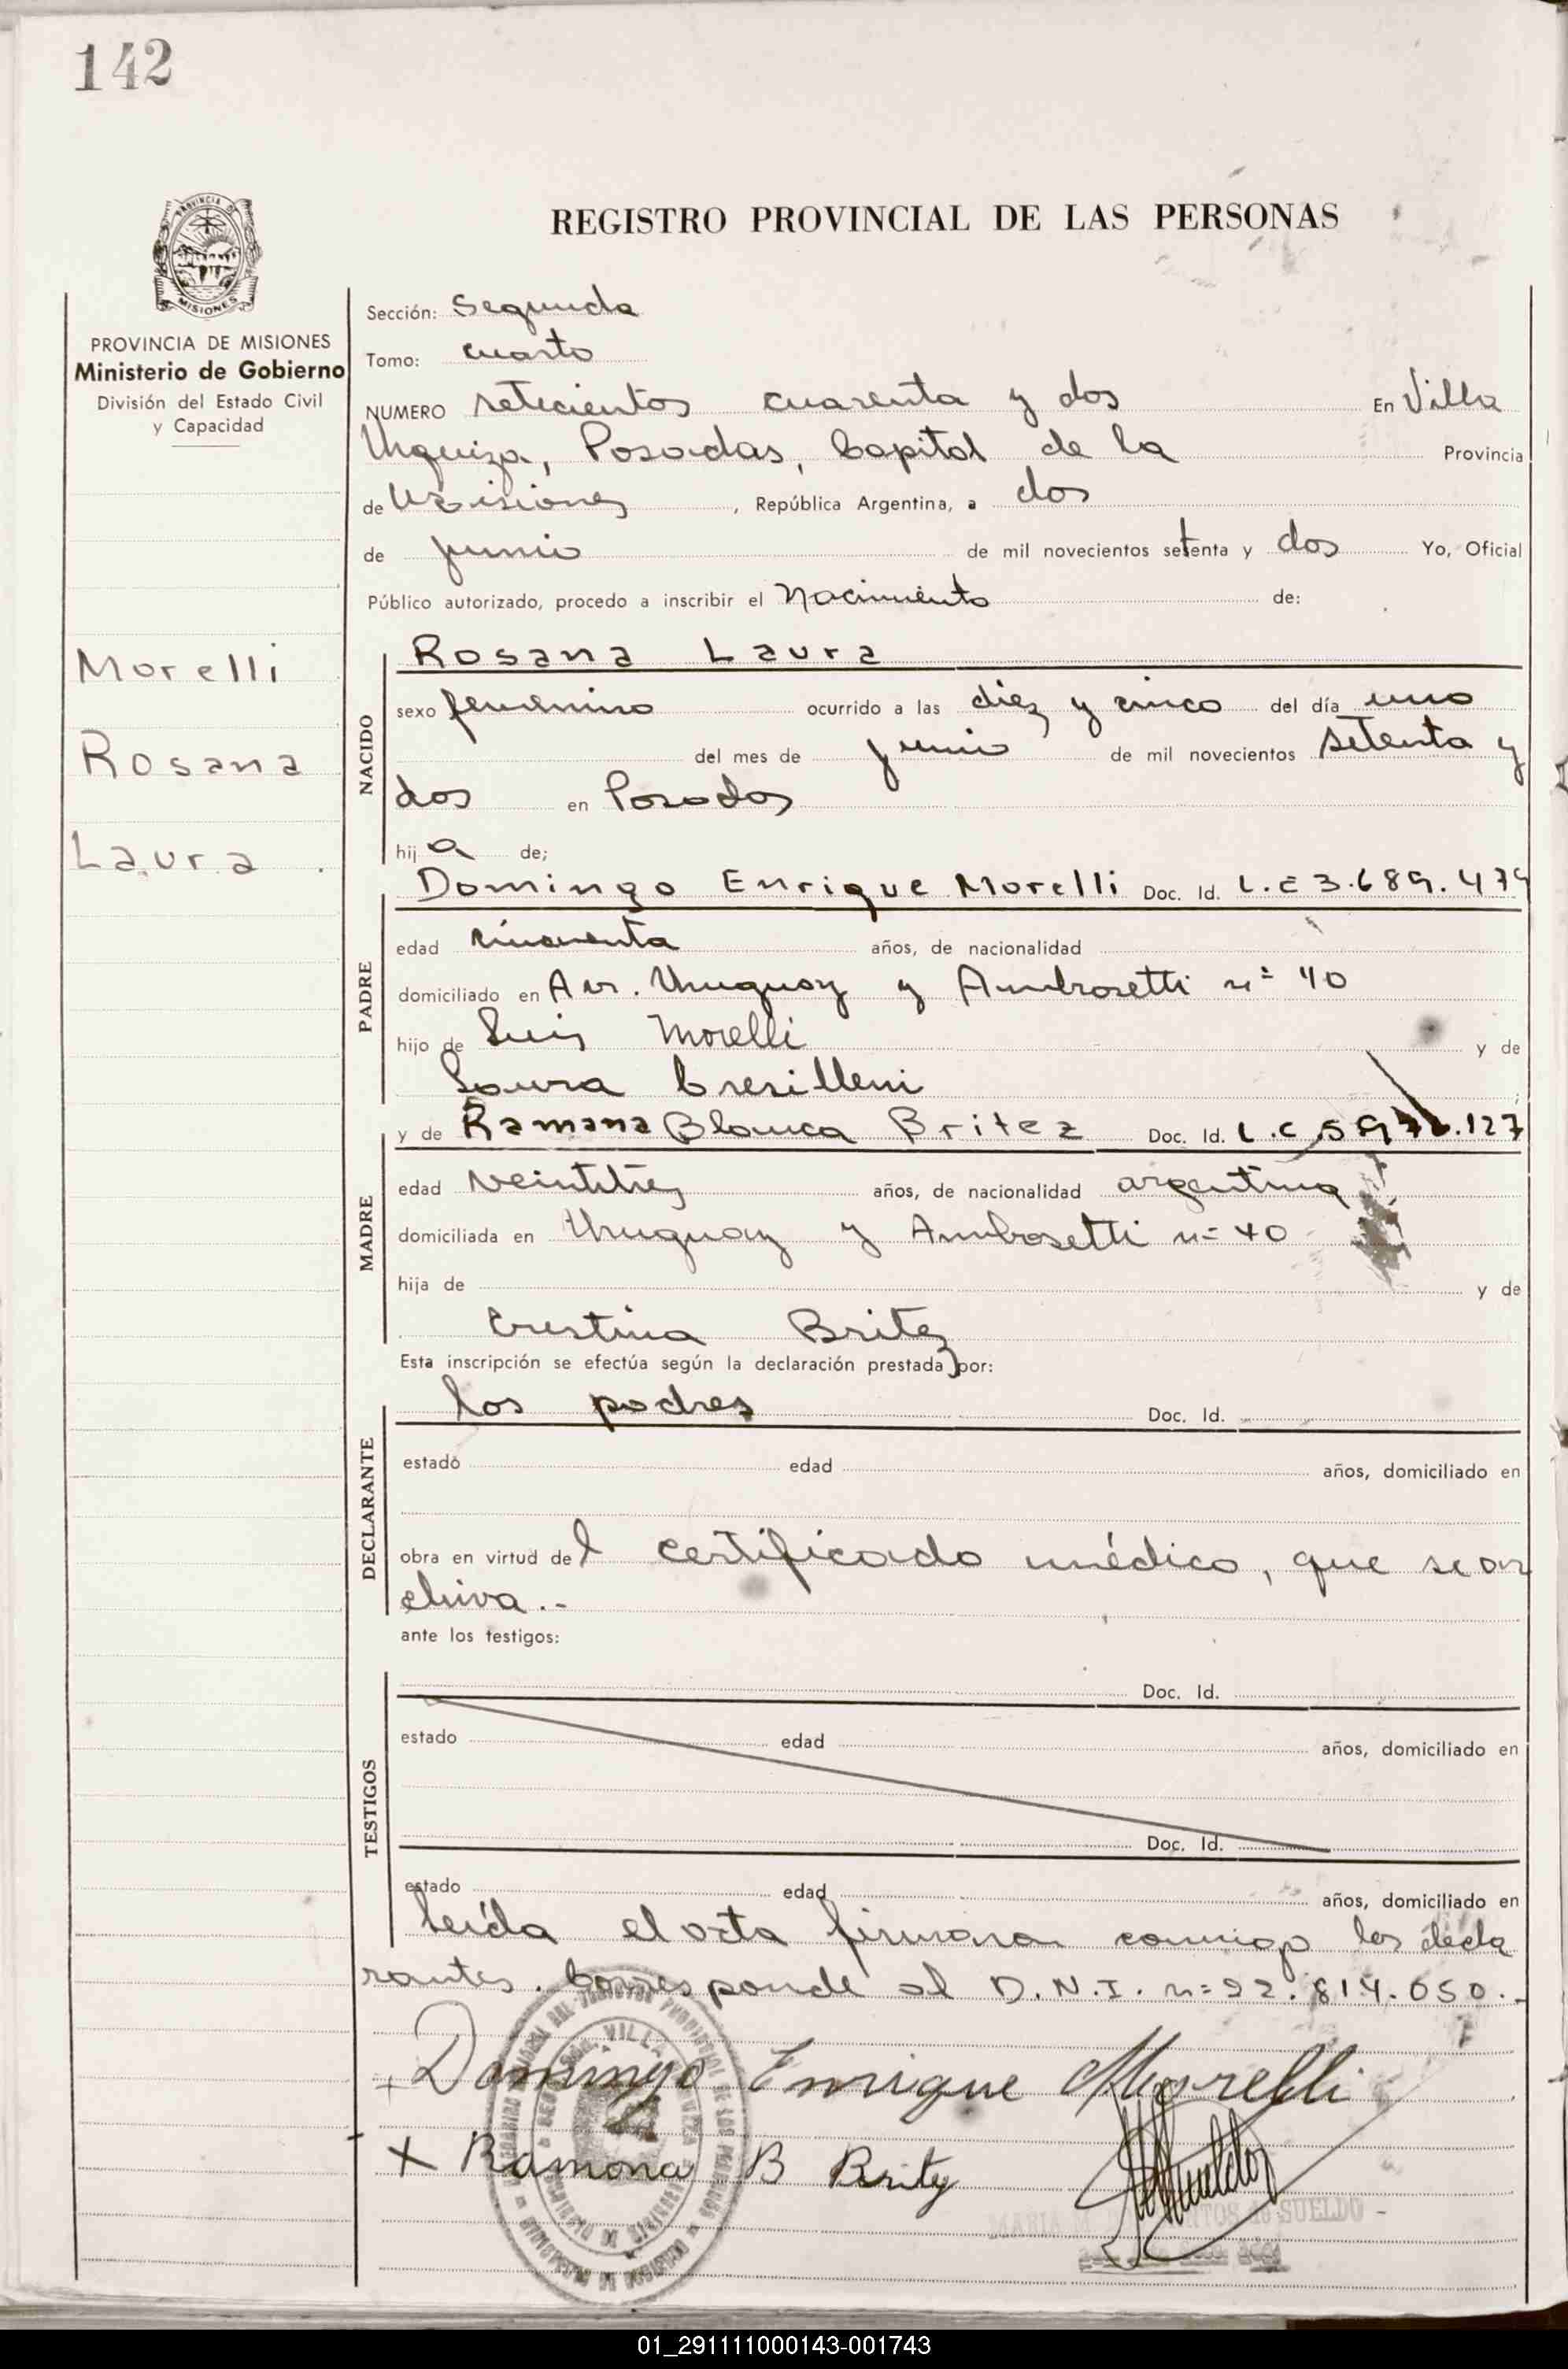 142
REGISTRO PROVINCIAL DE LAS PERSONAS
PROVINCIA DE MISIONES
Ministerio de Gobierno
División del Estado Civil
y Capacidad
Morelli
Rosana
Laura
Sección: Segunda
Tomo: cuarto
NUMERO setecientos cuarenta y dos En Villa
Urquiza, Posadas, Capital de la Provincia
de Misiones, República Argentina, a dos
de junio de mil novecientos setenta y dos Yo, Oficial
Público autorizado, procedo a inscribir el Nacimiento de:
NACIDO
Rosana Laura
sexo femenino ocurrido a las diez y cinco del día uno
del mes de junio de mil novecientos setenta y
dos en Posadas
hija de;
PADRE
Domingo Enrique Morelli Doc. Id. L.E 3.689.479
edad cincuenta años, de nacionalidad
domiciliado en Av. Uruguay y Ambrosetti nº 40
hijo de Luis Morelli y de
Laura
MADRE
y de Ramona Blanca Britez Doc. Id. L.C .127
edad veintitrés años, de nacionalidad argentina
domiciliada en Uruguay y Ambrosetti nº 40
hija de y de
Cristina Britez
Esta inscripción se efectúa según la declaración prestada por:
DECLARANTE
los padres Doc. Id.
estado edad años, domiciliado en
obra en virtud del certificado médico, que se ar
chiva.-
ante los testigos:
TESTIGOS
Doc. Id.
estado edad años, domiciliado en
Doc. Id.
estado edad años, domiciliado en
Leída el acta firman conmigo los decla
rantes. Corresponde al D.N.I. nº 22.814.050.-
Domingo Enrique Morelli
x Ramona B Britez
MARIA M. SUELDO
01_291111000143-001743